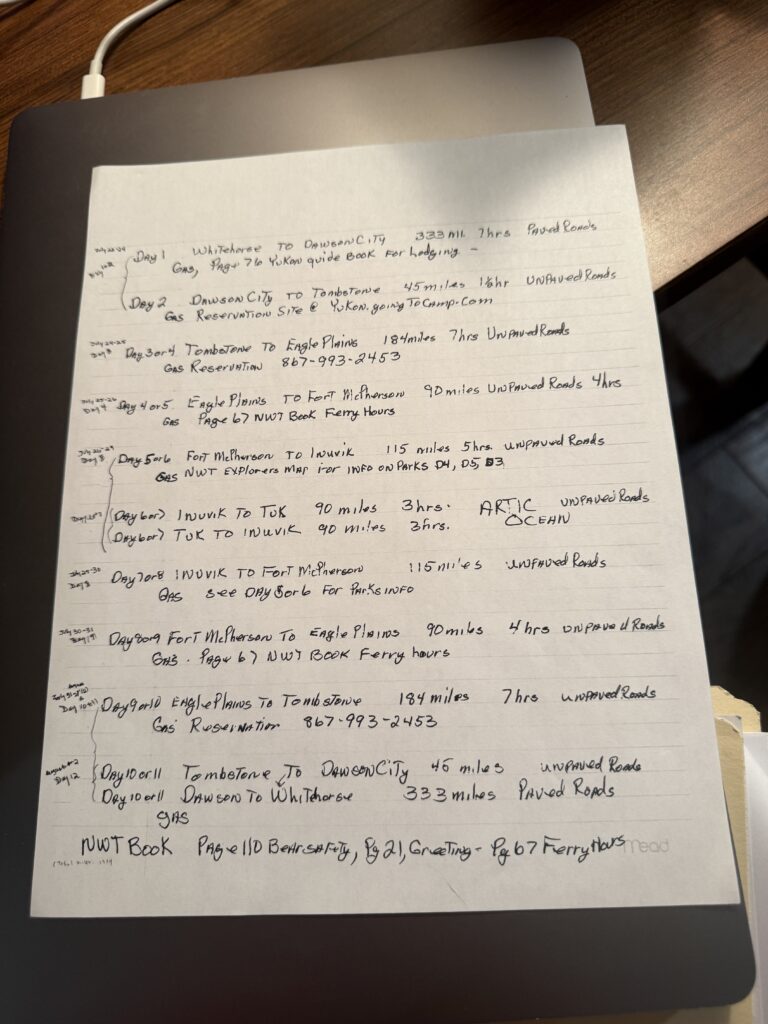 Day 1 Whitehorse To Dawson City 333 mi. 7hrs Paved Roads
Gas, Page 76 Yukon guide Book For Lodging -
Day 2 Dawson City To Tombstone 45 miles 1½hr UNPaved Roads
Gas Reservation Site @ Yukon.goingToCamp.com
July 24-25
Day 3
Day 3 or 4 Tombstone To Eagle Plains 184 miles 7hrs UnPaved Roads
Gas Reservation 867-993-2453
July 25-26
Day 4
Day 4 or 5 Eagle Plains To Fort McPherson 90 miles UnPaved Roads 4hrs
Gas Page 67 NWT Book Ferry Hours
Day 5 or 6 Fort McPherson To Inuvik 115 miles 5hrs. unpaved Roads
Gas NWT Explorers Map For INFO ON Parks D4, D5, D3
(Day 6 or 7 INUVIK TO TUK 90 miles 3hrs. ARTIC OCEAN UNPaved Roads
(Day 6 or 7 TUK TO INUVIK 90 miles 3hrs.
Day 7 or 8 INUVIK TO Fort McPherson 115 miles unPaved Roads
Gas See DAY 5 or 6 For Parks INFO
July 30-31
Day 8 or 9 Fort McPherson To Eagle Plains 90 miles 4hrs unpaved Roads
Gas. Page 67 NWT Book Ferry hours
Day 10 or 11
Day 9 or 10 Eagle Plains To Tombstone 184 miles 7hrs unpaved Roads
Gas Reservation 867-993-2453
Day 12
(Day 10 or 11 Tombstone To Dawson City 45 miles unpaved Roads
(Day 10 or 11 Dawson To Whitehorse 333 miles Paved Roads
gas
NWT Book Page 110 Bear safety, Pg 21, Greeting - Pg 67 Ferry Hours
Mead